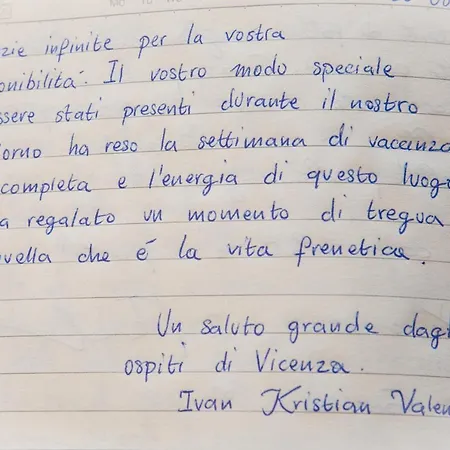 zie infinite per la vostra
onibilità. Il vostro modo speciale
ssere stati presenti durante il nostro
iorno ha reso la settimana di vacanza
completa e l'energia di questo luog
a regalato un momento di tregua
uella che è la vita frenetica.
Un saluto grande dag
ospiti di Vicenza.
Ivan Kristian Valen